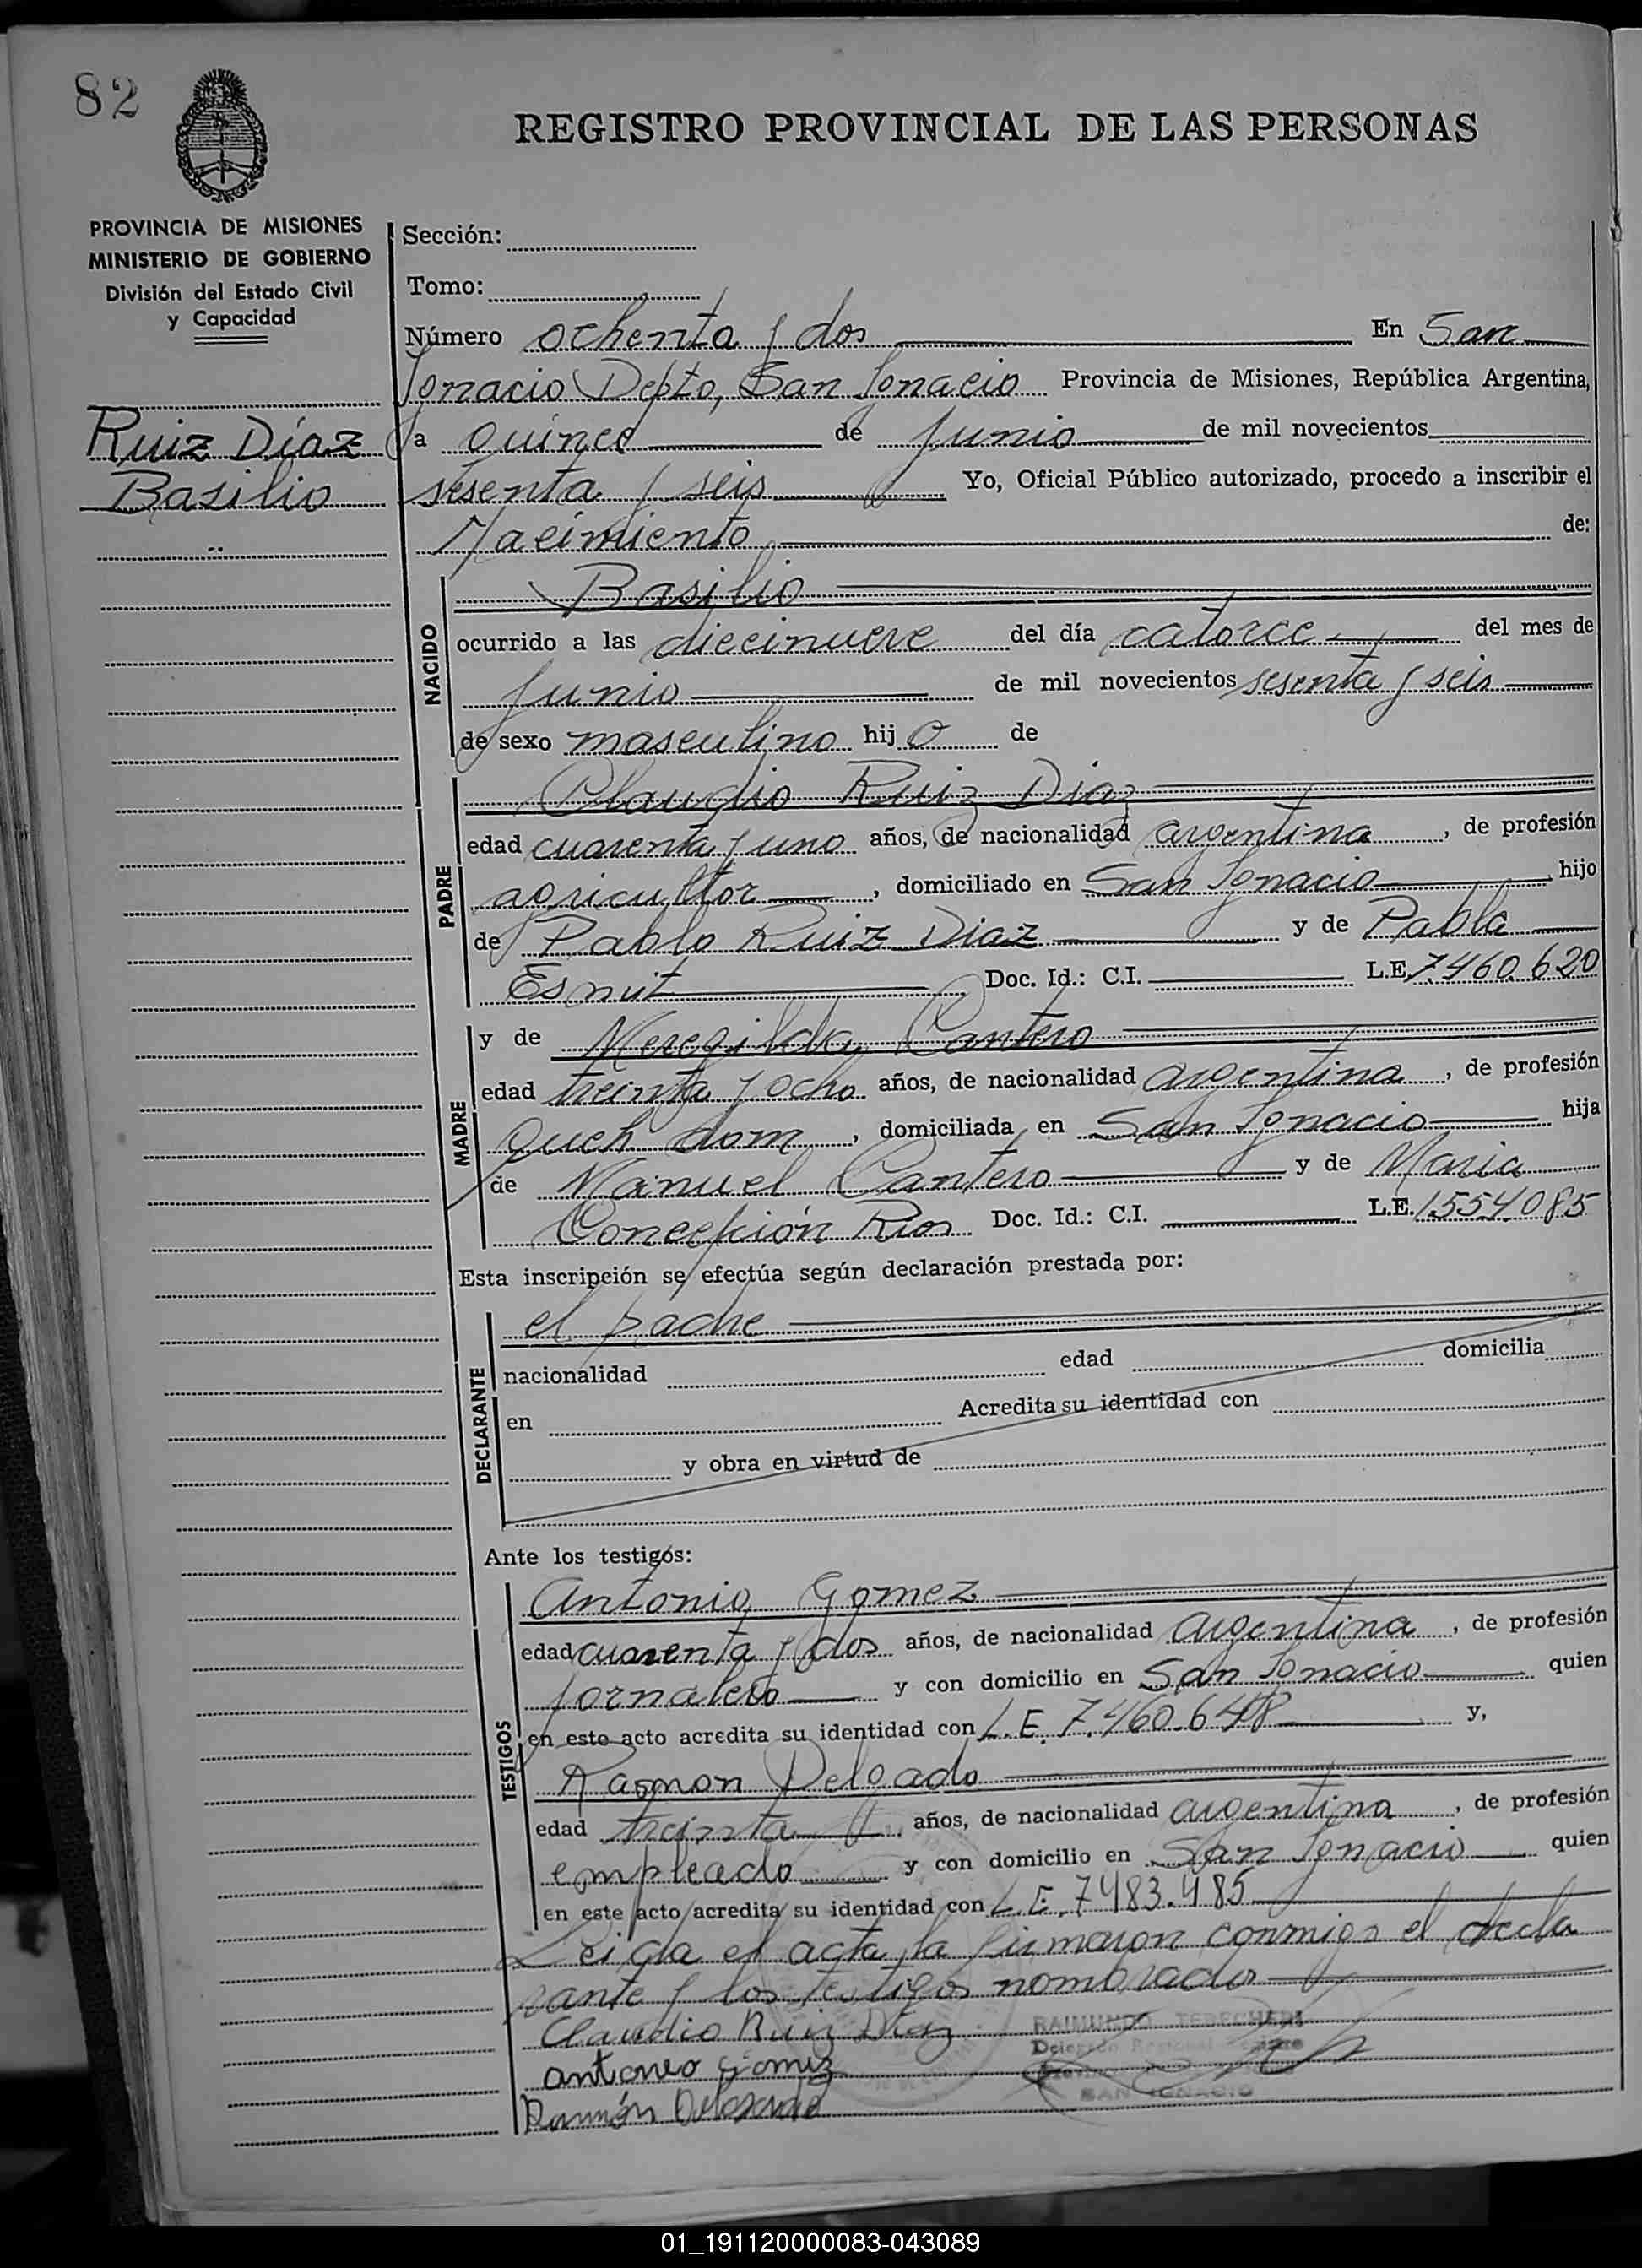 82
REGISTRO PROVINCIAL DE LAS PERSONAS
PROVINCIA DE MISIONES
MINISTERIO DE GOBIERNO
División del Estado Civil
y Capacidad
Ruiz Díaz
Basilio
Sección:
Tomo:
Número ochenta y dos En San
Ignacio Depto, San Ignacio Provincia de Misiones, República Argentina,
a quince de Junio de mil novecientos
sesenta y seis Yo, Oficial Público autorizado, procedo a inscribir el
Nacimiento de:
NACIDO
Basilio
ocurrido a las diecinueve del día catorce del mes de
Junio de mil novecientos sesenta y seis
de sexo masculino hij o de
PADRE
Claudio Ruiz Diaz
edad cuarenta y uno años, de nacionalidad argentina, de profesión
agricultor, domiciliado en San Ignacio hijo
de Pablo Ruiz Diaz y de Pabla
Doc. Id.: C.I. L.E. 7.460.620
MADRE
y de Meregilda Cantero
edad treinta y ocho años, de nacionalidad argentina, de profesión
queh dom, domiciliada en San Ignacio hija
de Manuel Cantero y de Maria
Concepción Rios Doc. Id.: C.I. L.E. 1.554.085
Esta inscripción se efectúa según declaración prestada por:
DECLARANTE
el padre
nacionalidad edad domicilia
en Acredita su identidad con
y obra en virtud de
Ante los testigos:
TESTIGOS
Antonio Gomez
edad cuarenta y dos años, de nacionalidad argentina, de profesión
jornalero y con domicilio en San Ignacio quien
en este acto acredita su identidad con L.E. 7.460.648 y,
Ramon Delgado
edad treinta años, de nacionalidad argentina, de profesión
empleado y con domicilio en San Ignacio quien
en este acto acredita su identidad con L.E. 7483.485
Leida el acta la firmaron conmigo el decla
rante y los testigos nombrados
Claudio Ruiz Diaz
antoneo Gomez
Ramón Delgado
SAN IGNACIO
01_191120000083-043089